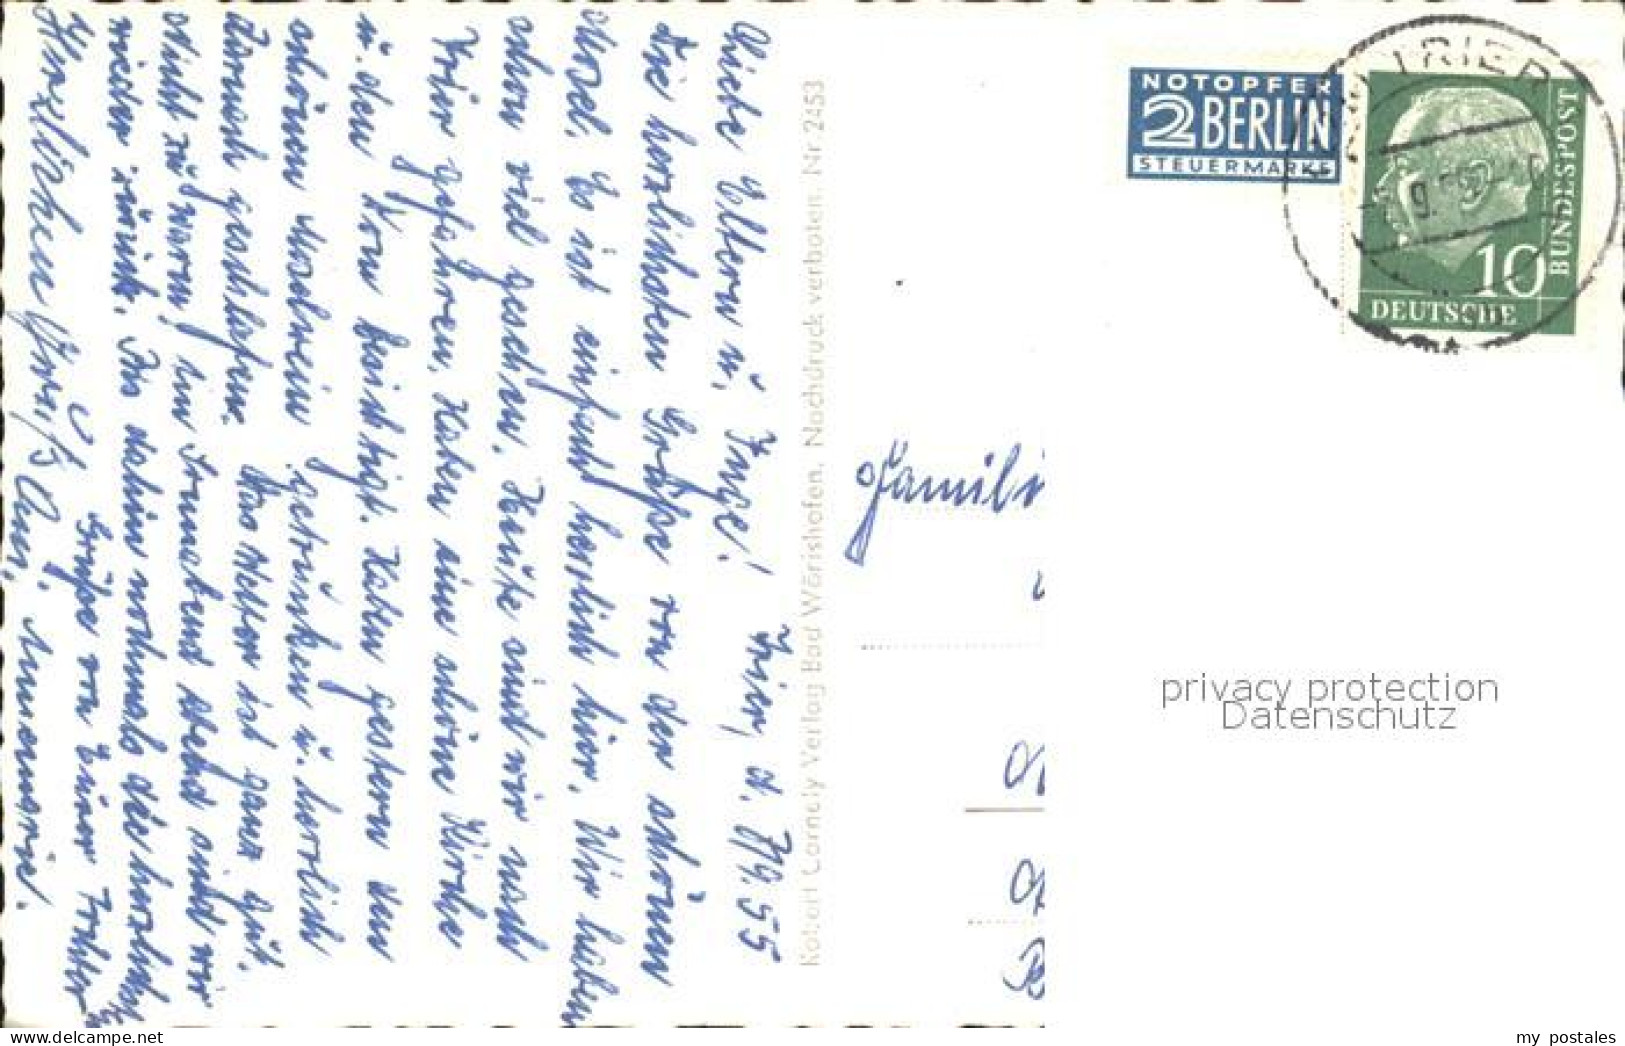 Trier, d. 7/9.55
Liebe Eltern u. Inge!
Die herzlichsten Grüße von der schönen
Mosel. Es ist einfach herrlich hier. Wir haben
schon viel gesehen. Heute sind wir nach
Trier gefahren. Haben eine schöne Kirche
u. den Dom besichtigt. Haben gestern den
schönen Moselwein getrunken u. herrlich
danach geschlafen. Das Wetter ist ganz gut.
Nicht zu warm. Am Sonnabend Abend sind wir
wieder zurück. Bis dahin nochmals die herzlichsten
Grüße von Eurer Tochter
Herzlichen Gruß
Annemarie.
Robert Cornely Verlag Bad Wörishofen. Nachdruck verboten. Nr 2453
NOTOPFER
2 BERLIN
STEUERMARKE
TRIER
10
DEUTSCHE
BUNDESPOST
Famili
privacy protection
Datenschutz
my postales